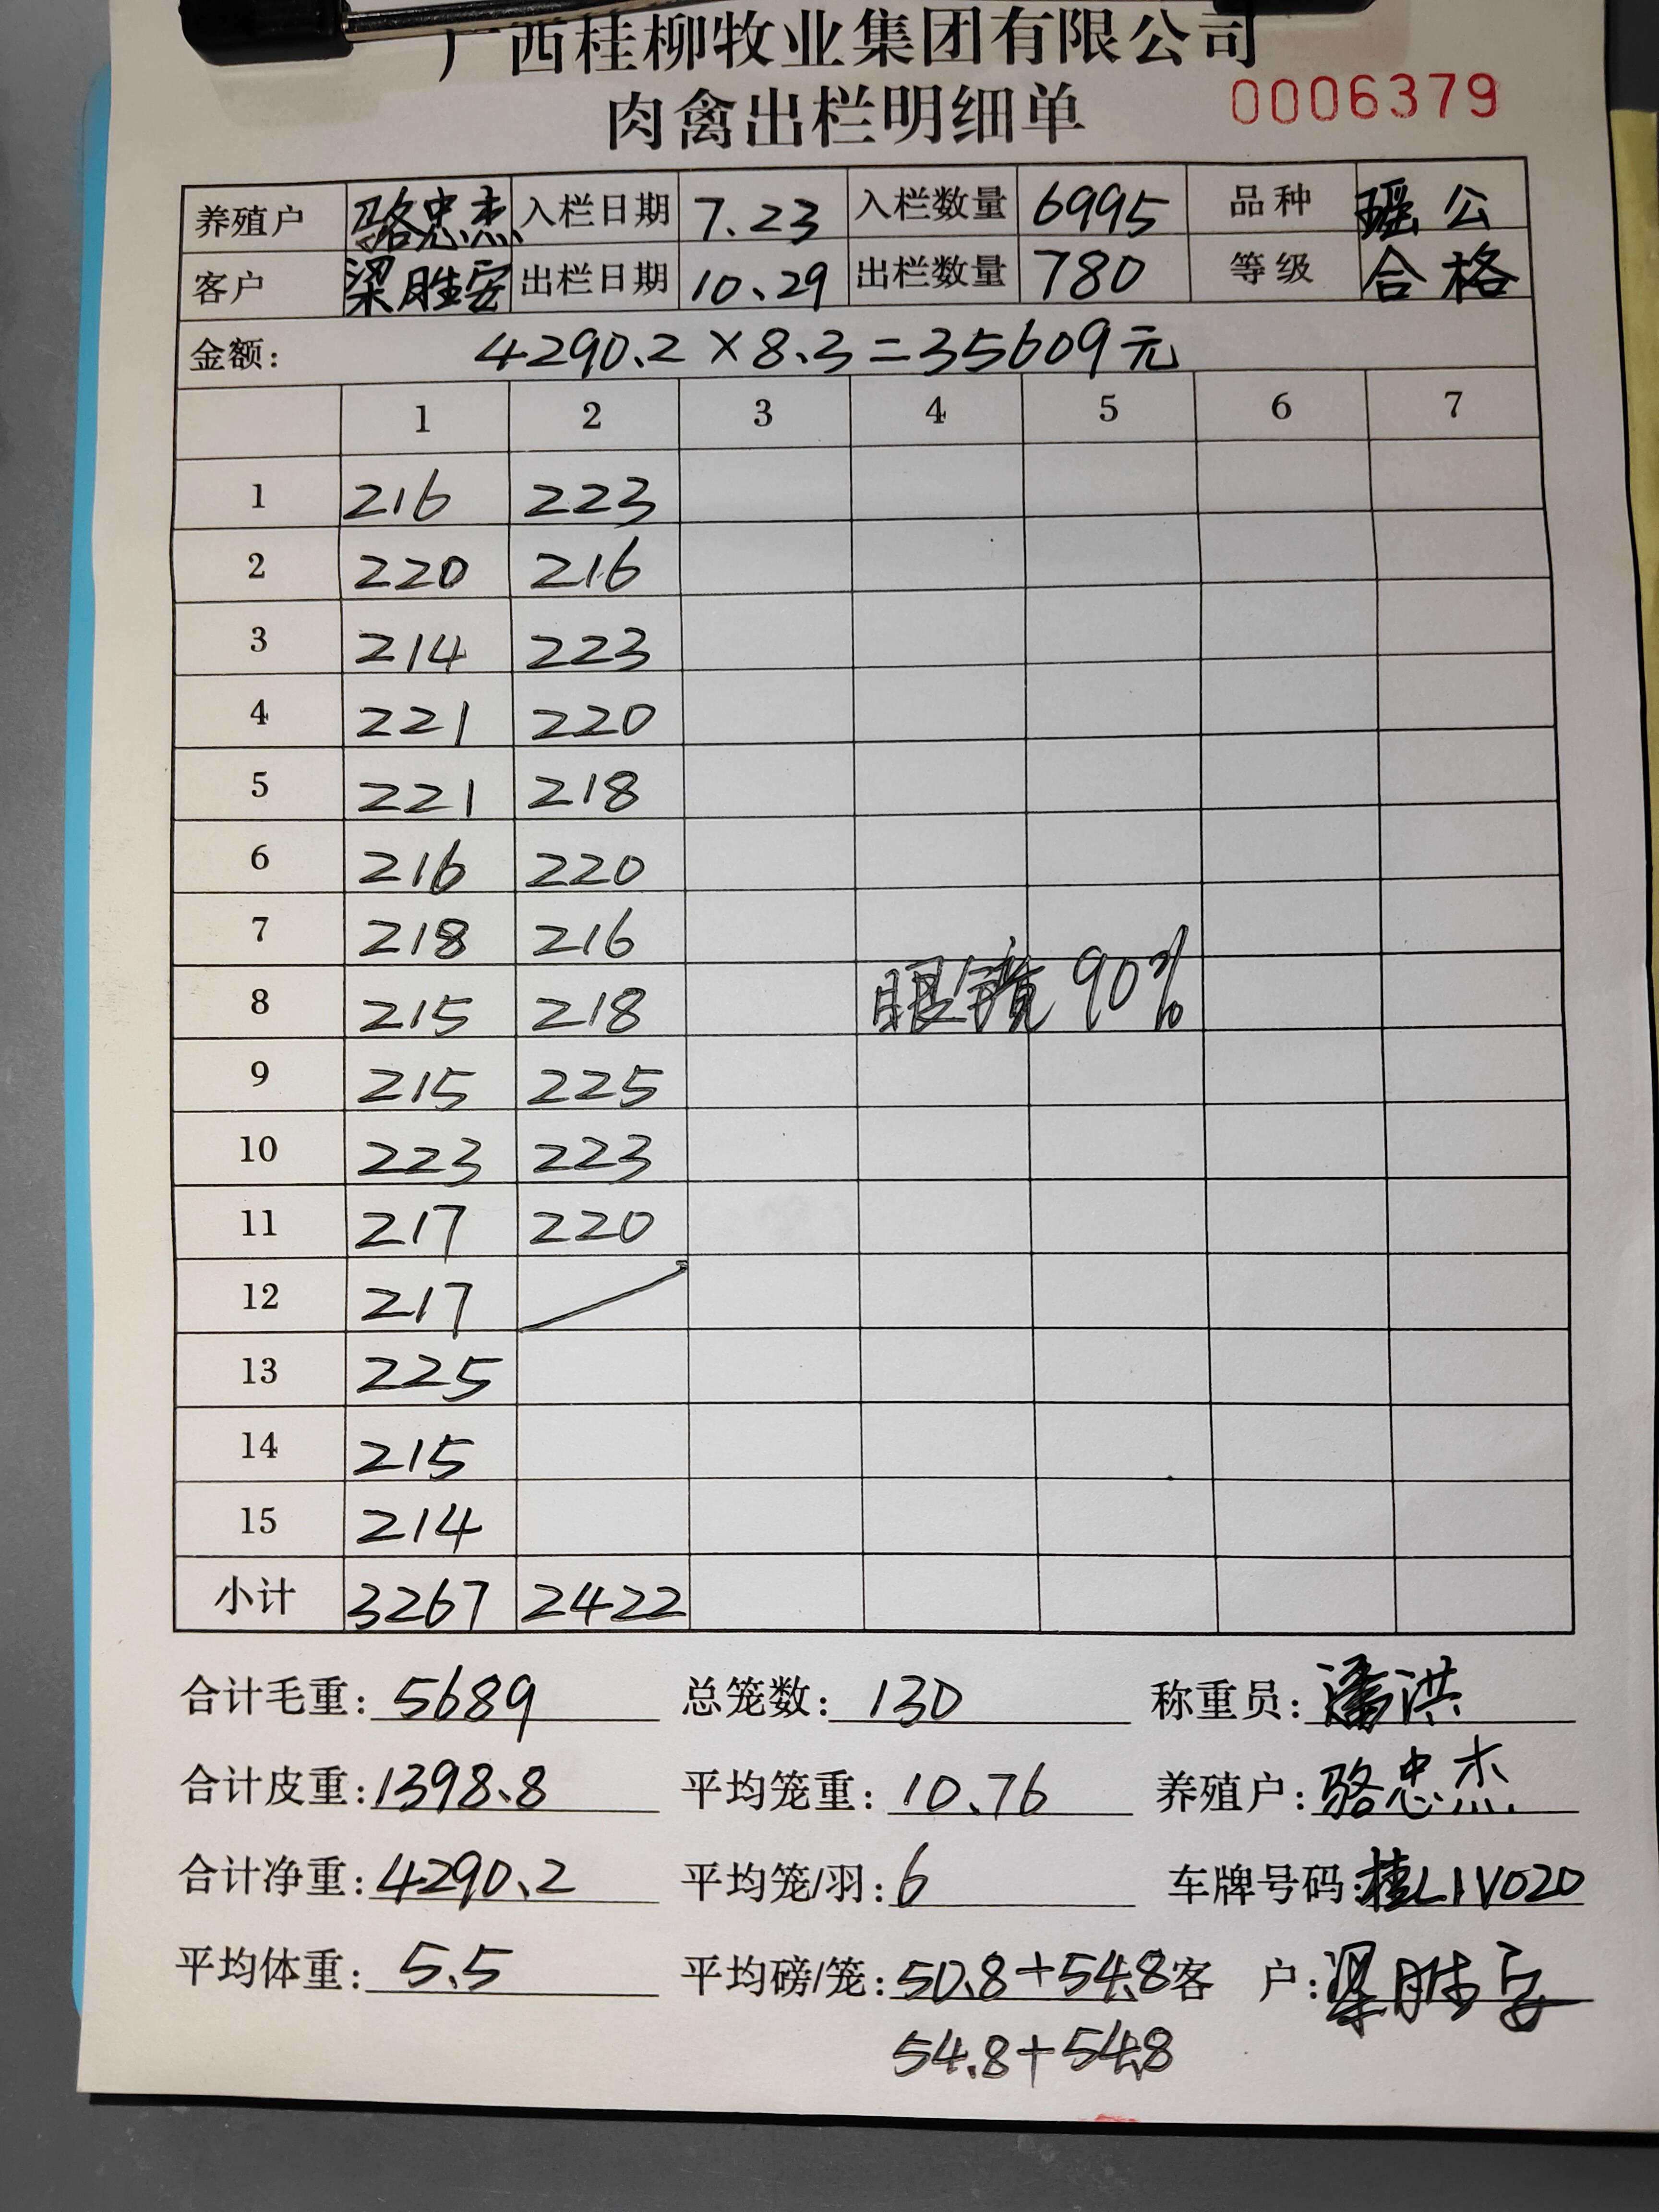 广西桂柳牧业集团有限公司
肉禽出栏明细单 0006379
养殖户 骆忠杰 入栏日期 7.23 入栏数量 6995 品种 瑶公
客户 梁胜安 出栏日期 10.29 出栏数量 780 等级 合格
金额: 4290.2×8.3=35609元
1 2 3 4 5 6 7
1 216 223
2 220 216
3 214 223
4 221 220
5 221 218
6 216 220
7 218 216
8 215 218 眼镜90%
9 215 225
10 223 223
11 217 220
12 217
13 225
14 215
15 214
小计 3267 2422
合计毛重: 5689 总笼数: 130 称重员: 潘洪
合计皮重: 1398.8 平均笼重: 10.76 养殖户: 骆忠杰
合计净重: 4290.2 平均笼/羽: 6 车牌号码: 桂L1V020
平均体重: 5.5 平均磅/笼: 50.8+54.8 客 户: 梁胜安
54.8+54.8